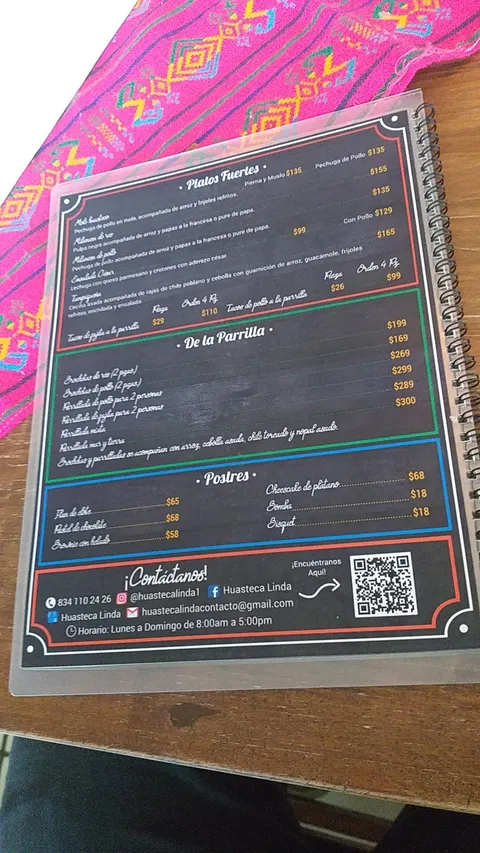 • Platos Fuertes •
Mole huasteco Pierna y Muslo $135 Pechuga de Pollo $135
Pechuga de pollo en mole, acompañada de arroz y frijoles refritos.
Milanesa de res $155
Pulpa negra acompañada de arroz y papas a la francesa o pure de papa.
Milanesa de pollo $135
Pechuga de pollo acompañada de arroz y papas a la francesa o pure de papa.
Ensalada César $99 Con Pollo $129
Lechuga con queso parmesano y crotones con aderezo césar.
Tampiqueña $165
Cecina asada acompañada de rajas de chile poblano y cebolla con guarnición de arroz, guacamole, frijoles
refritos, enchilada y ensalada.
Pieza Orden 4 Pz Pieza Orden 4 Pz
Tacos de fajita a la parrilla $29 $110 Tacos de pollo a la parrilla $26 $99
• De la Parrilla •
Brochetas de res (2 pzas) $199
Brochetas de pollo (2 pzas) $169
Parrillada de pollo para 2 personas $269
Parrillada de fajita para 2 personas $299
Parrillada mixta $289
Parrillada mar y tierra $300
Brochetas y parrilladas se acompañan con arroz, cebolla asada, chile toreado y nopal asado.
• Postres •
Flan de elote $65
Pastel de chocolate $68
Brownie con helado $58
Cheesecake de plátano $68
Bomba $18
Bisquet $18
¡Contáctanos!
834 110 24 26 @huastecalinda1 Huasteca Linda
Huasteca Linda huastecalindacontacto@gmail.com
Horario: Lunes a Domingo de 8:00am a 5:00pm
¡Encuéntranos
Aquí!